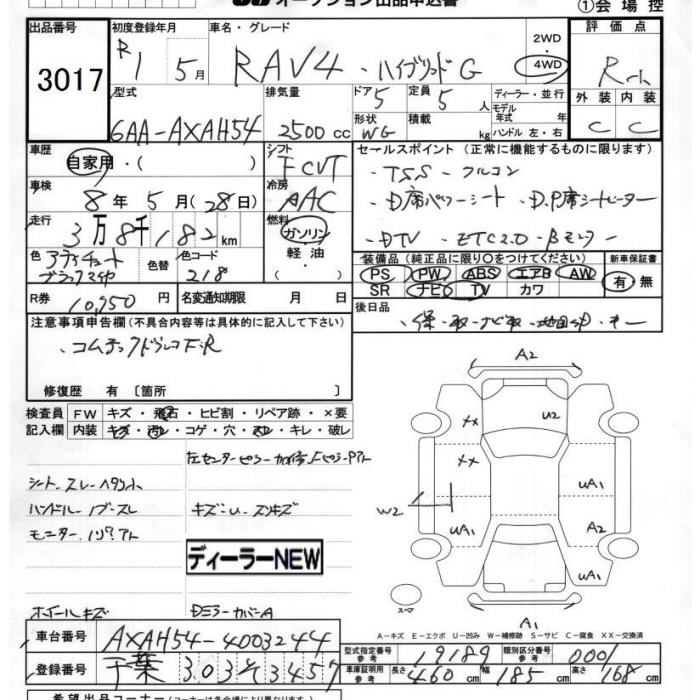 オークション出品申込書 ①会場控
出品番号 初度登録年月 車名・グレード 2WD・4WD 評価点
3017 R1 5月 RAV4・ハイブリッドG R
型式 排気量 ドア 定員 ディーラー・並行 外装 内装
6AA-AXAH54 2500cc 5 5人 モデル年式 年式 C C
形状 積載 kg ハンドル 左・右
WG
車歴 シフト セールスポイント (正常に機能するものに限ります)
自家用・( ) FCVT ・TSS・フルコン
車検 冷房 ・D席パワーシート・D,P席シートヒーター
8年5月(28日) AAC ・DTV・ETC2.0・Bモニター
走行 燃料
3万8千182km ガソリン 軽油・( )
装備品 (純正品に限り○をつけてください) 新車保証書
PS PW ABS エアB AW 有・無
SR ナビ TV カワ
色 アティチュードブラックマイカ 色替 色コード 218
後日品
R券 10,950円 名変通知期限 月 日 ・保・取・ナビ取・地図SD・キー
注意事項申告欄 (不具合内容等は具体的に記入して下さい)
・コムテックドラレコF.R
修復歴 有 [箇所 ]
検査員記入欄 FW キズ・飛石・ヒビ割・リペア跡・×要
内装 キズ・汚れ・コゲ・穴・スレ・キレ・破レ
シート.スレ.ヘタリ
ハンドル.ノブ.スレ キズ・U・スリキズ
モニター.ノリアト
ディーラーNEW
ホイールキズ Dミラーカバー A
A2
U2
XX
XX UA1
W2
UA1 A2
UA1
スペア
A1
A−キズ E−エクボ U−凹み W−補修跡 S−サビ C−腐食 XX−交換済
車台番号 AXAH54-4003244
登録番号 千葉 303 そ 3457
型式指定番号 参考 19189 類別区分番号 参考 0001
車庫証明用 参考 長さ 460cm 幅 185cm 高さ 168cm
希望出品コーナー (コーナーは各会場により異なります)